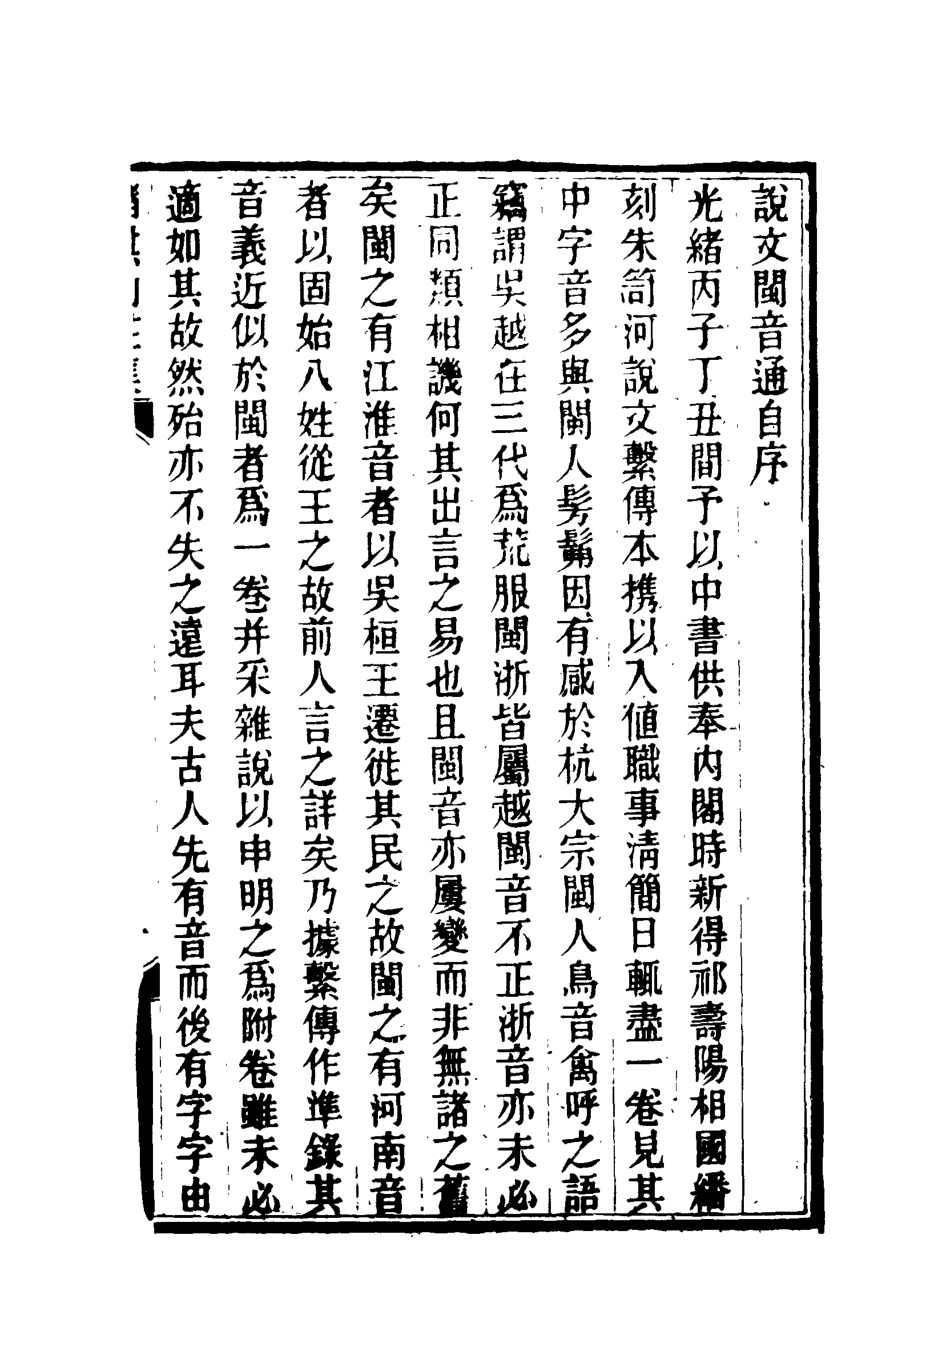 說文閩音通自序
光緒丙子丁丑間予以中書供奉內閣時新得祁壽陽相國繙
刻朱笥河說文繫傳本攜以入值職事清簡日輒盡一卷見其
中字音多與閩人髣髴因有感於杭大宗閩人鳥音禽呼之語
竊謂吳越在三代爲荒服閩浙皆屬越閩音不正浙音亦未必
正同類相譏何其出言之易也且閩音亦屢變而非無諸之舊
矣閩之有江淮音者以吳桓王遷徙其民之故閩之有河南音
者以固始八姓從王之故前人言之詳矣乃據繫傳作準錄其
音義近似於閩者爲一卷并采雜說以申明之爲附卷雖未必
適如其故然殆亦不失之遠耳夫古人先有音而後有字字由